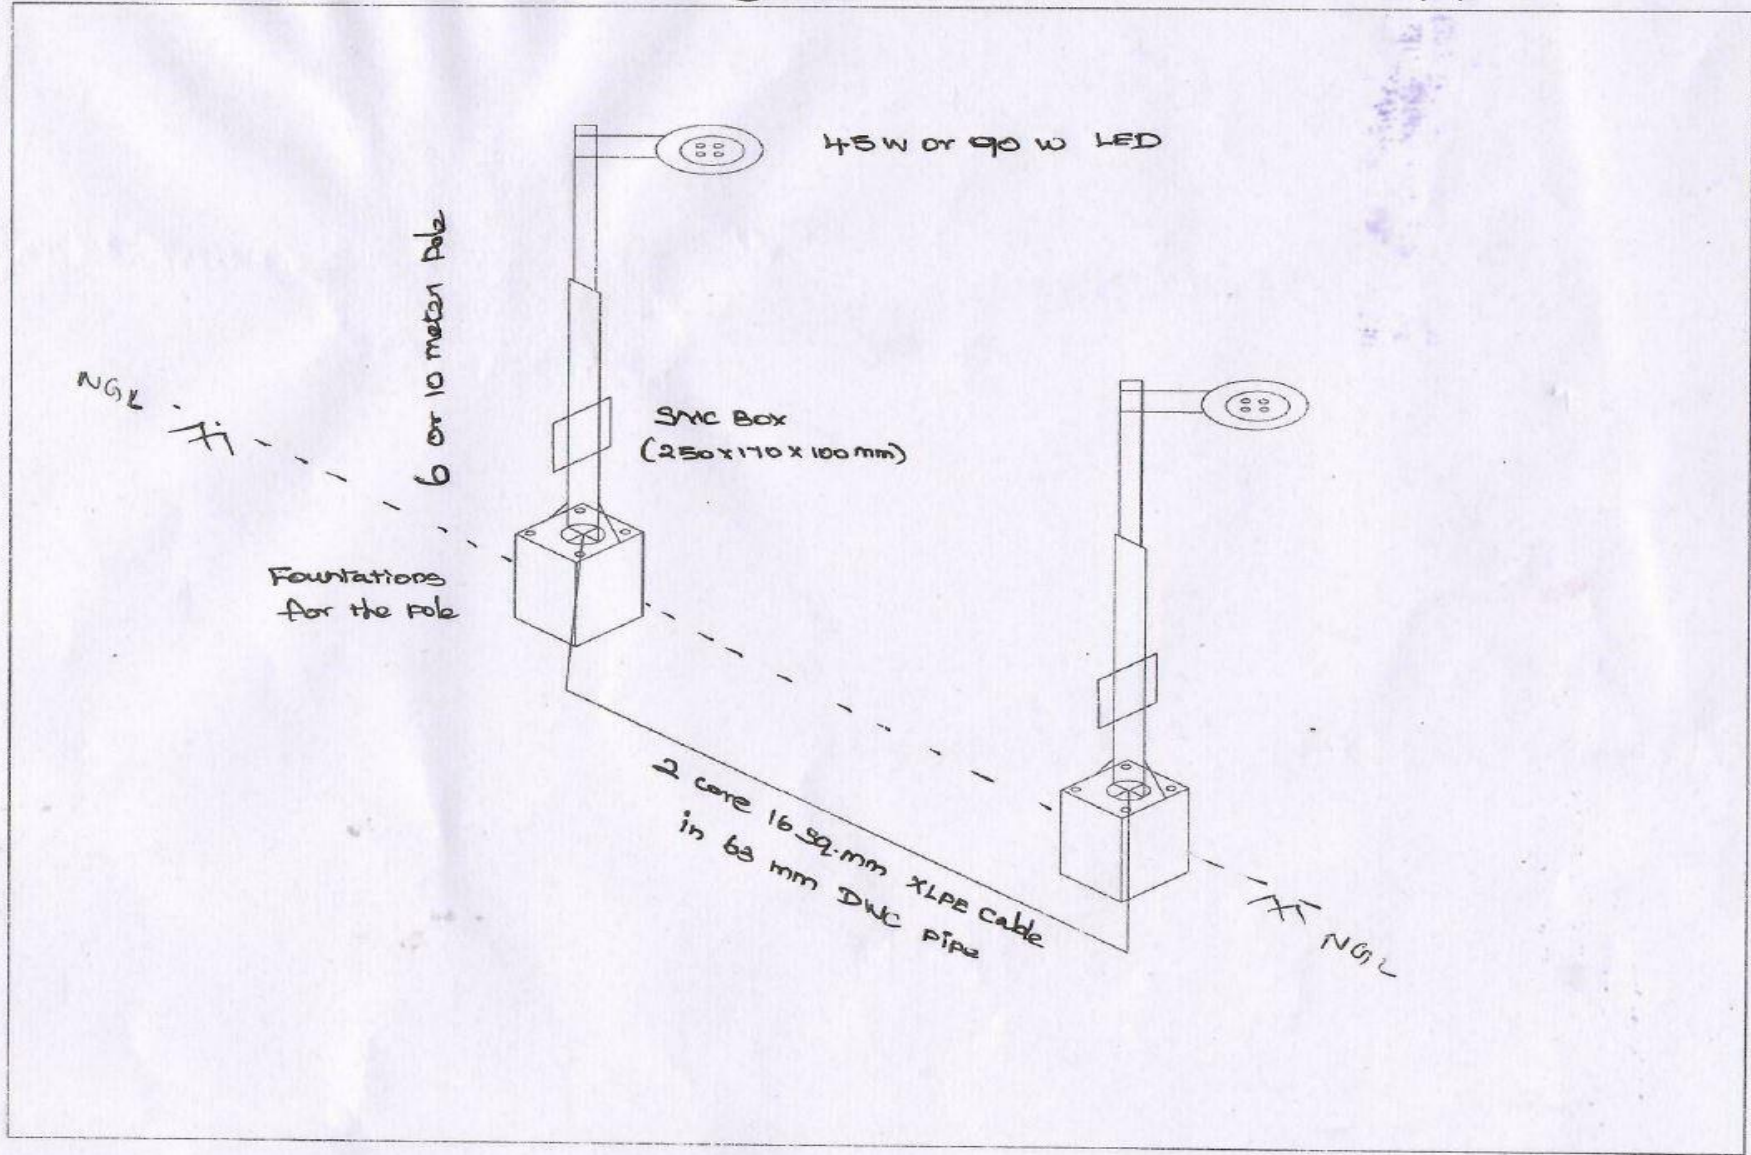 45 W or 90 W LED
6 or 10 meter Pole
NGL
SMC BOX
(250x170x100mm)
Fountations
for the Pole
2 core 16 sq.mm XLPE Cable
in 63 mm DWC pipe
NGL